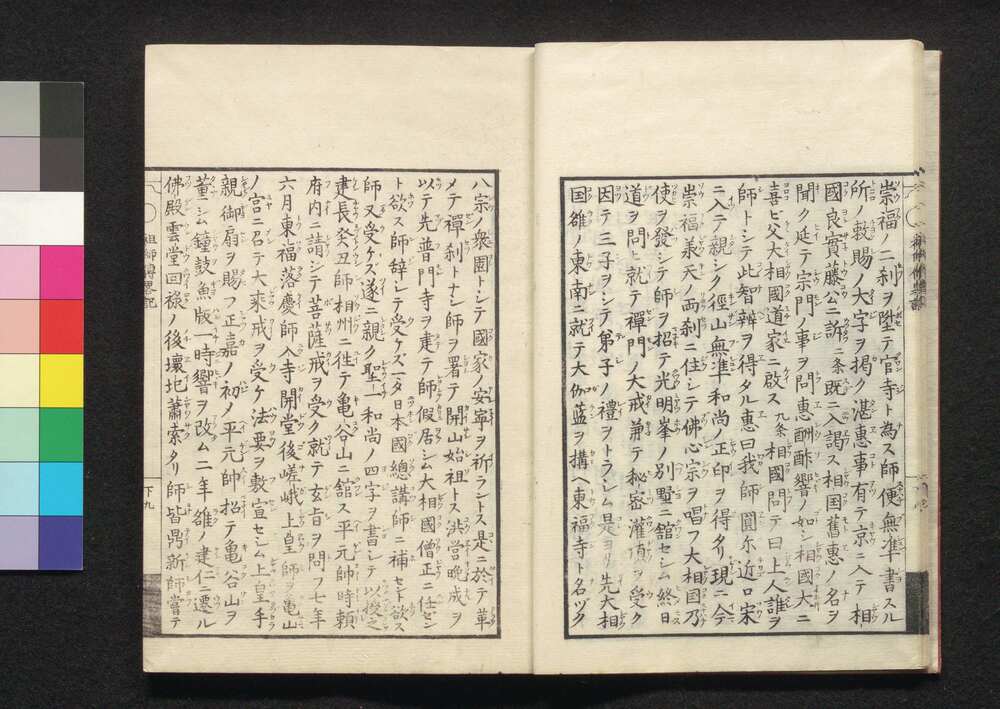 崇福ノ二刹ヲ陞テ官寺ト為ス師便無準書スル
所ノ敕賜ノ大字ヲ掲ク湛惠事有テ京ニ入テ相
國良實藤公ニ訴二条既ニ入謁ス相国舊惠ノ名ヲ
聞ク延テ宗門ノ事ヲ問惠酬酢響ノ如シ相國大ニ
喜ビ父大相國道家ニ啟ス九条相國問テ曰上人誰ヲ
師トシテ此智辨ヲ得タル惠曰我師圓尓近口宋
ニ入テ親シク徑山無準和尚ノ正印ヲ得タリ現ニ今
崇福義天ノ両刹ニ住シテ佛心宗ヲ唱フ大相国乃
使ヲ發シテ師ヲ招テ光明峯ノ別墅ニ舘セシム終日
道ヲ問上就テ禪門ノ大戒并テ秘密灌頂ヲ受ク
因テ三子ヲシテ弟子ノ禮ヲトラシム是ヨリ先大相
国雒ノ東南ニ就テ大伽藍ヲ搆ヘ東福寺ト名ヅク
八宗ノ衆園トシテ國家ノ安寧ヲ祈ラントス是ニ於テ革
メテ禪刹トナシ師ヲ署テ開山始祖トス洪営晩成ヲ
以テ先普門寺ヲ建テ師假居シム大相國僧正ニ任ゼン
ト欲ス師辞シテ受ケズ一タ日本國總講師ニ補セント欲ス
師又受ケズ遂ニ親ク聖一和尚ノ四字ヲ書シテ以授之
建長癸丑師相州ニ徃テ亀谷山ニ舘ス平元帥時頼
府内ニ請シテ菩薩戒ヲ受ク就テ玄旨ヲ問フ七年
六月東福落慶師入寺開堂後嵯峨上皇師ヲ亀山
ノ宮ニ召テ大乘戒ヲ受ケ法要ヲ敷宣セシム上皇手
親御扇ヲ賜フ正嘉ノ初ノ平元帥招テ亀谷山ヲ
董シム鐘鼓魚版一時響ヲ改ム二年雒ノ建仁ニ遷ル
佛殿雲堂回禄ノ後壞圯蕭索タリ師皆鼎新師嘗テ
祖師傳畧記
下九